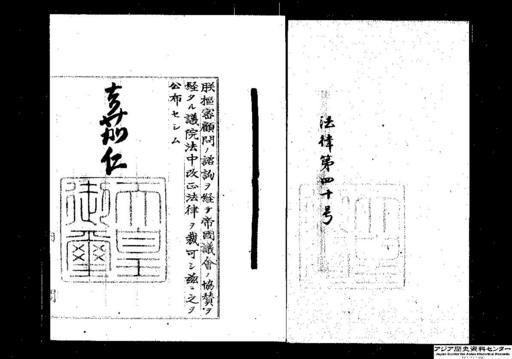 法律第四十号
朕樞密顧問ノ諮詢ヲ経テ帝國議會ノ協賛ヲ
経タル議院法中改正法律ヲ裁可シ茲ニ之ヲ
公布セシム
嘉仁
天皇
御璽
アジア歴史資料センター
Japan Center for Asian Historical Records